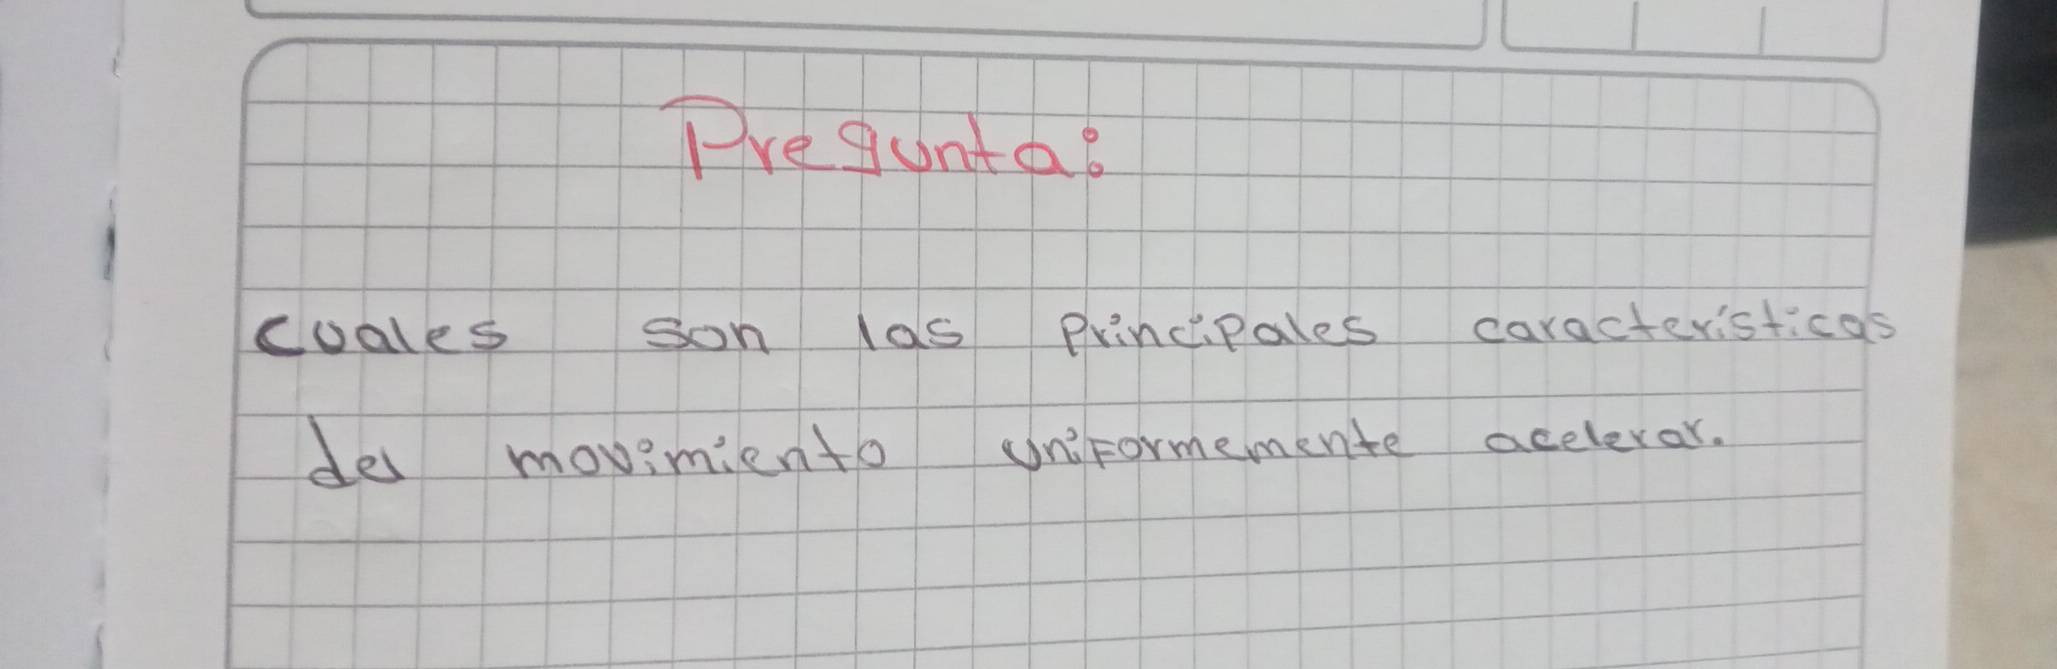 Pregunta:
cuales son las principales características
del movimiento uniformemente acelerar.